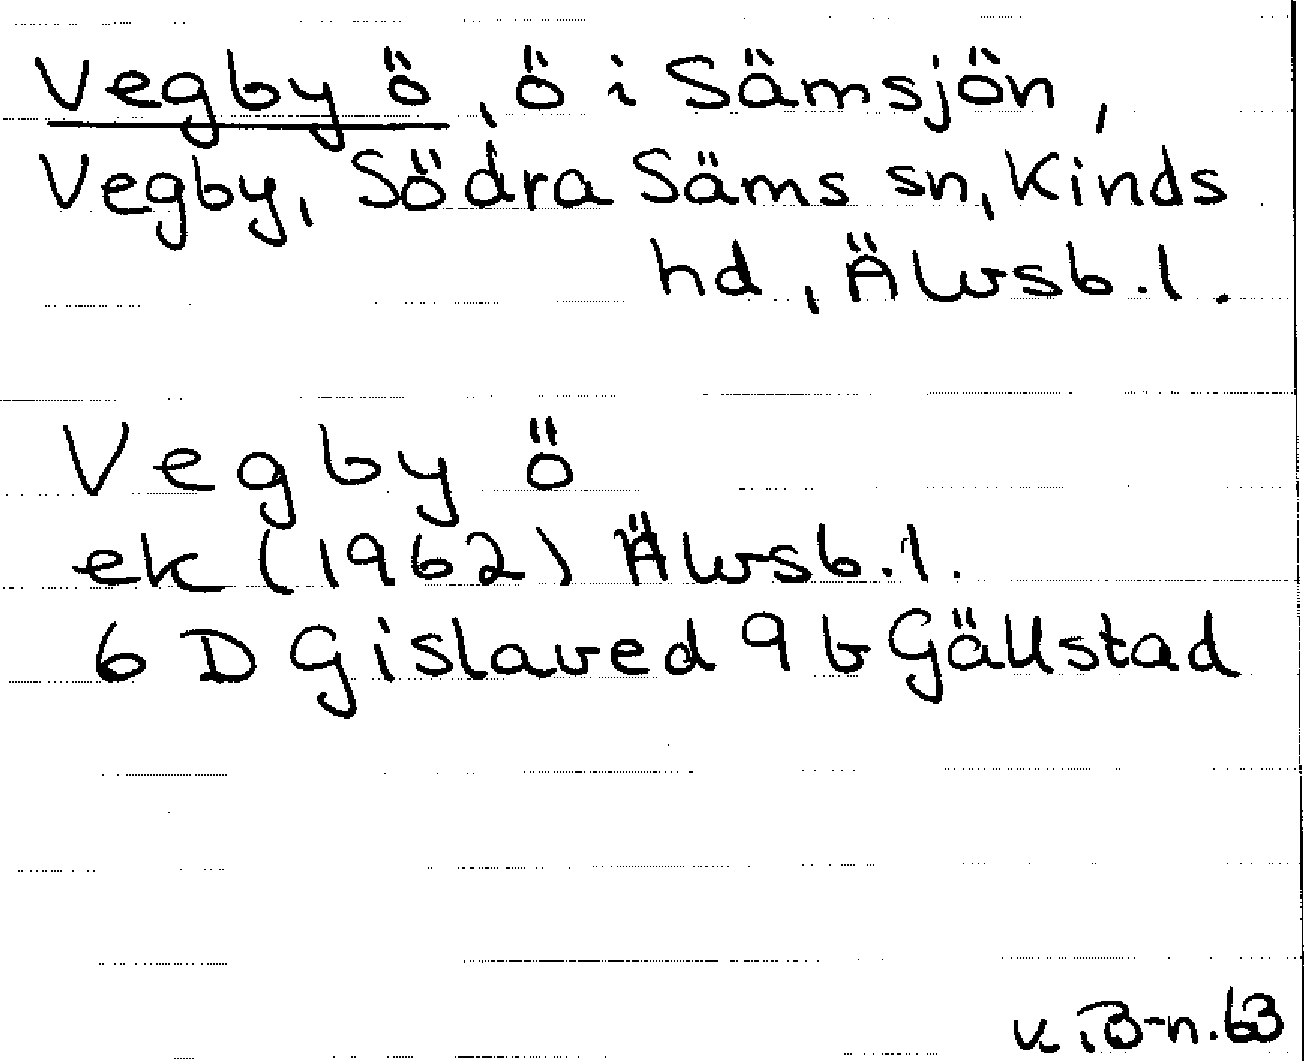 Vegby ö, ö i Sämsjön,
Vegby, Södra Säms sn, Kinds
hd, Älvsb.l.
Vegby ö
ek (1962) Älvsb.l.
6 D Gislaved 9 b Gällstad